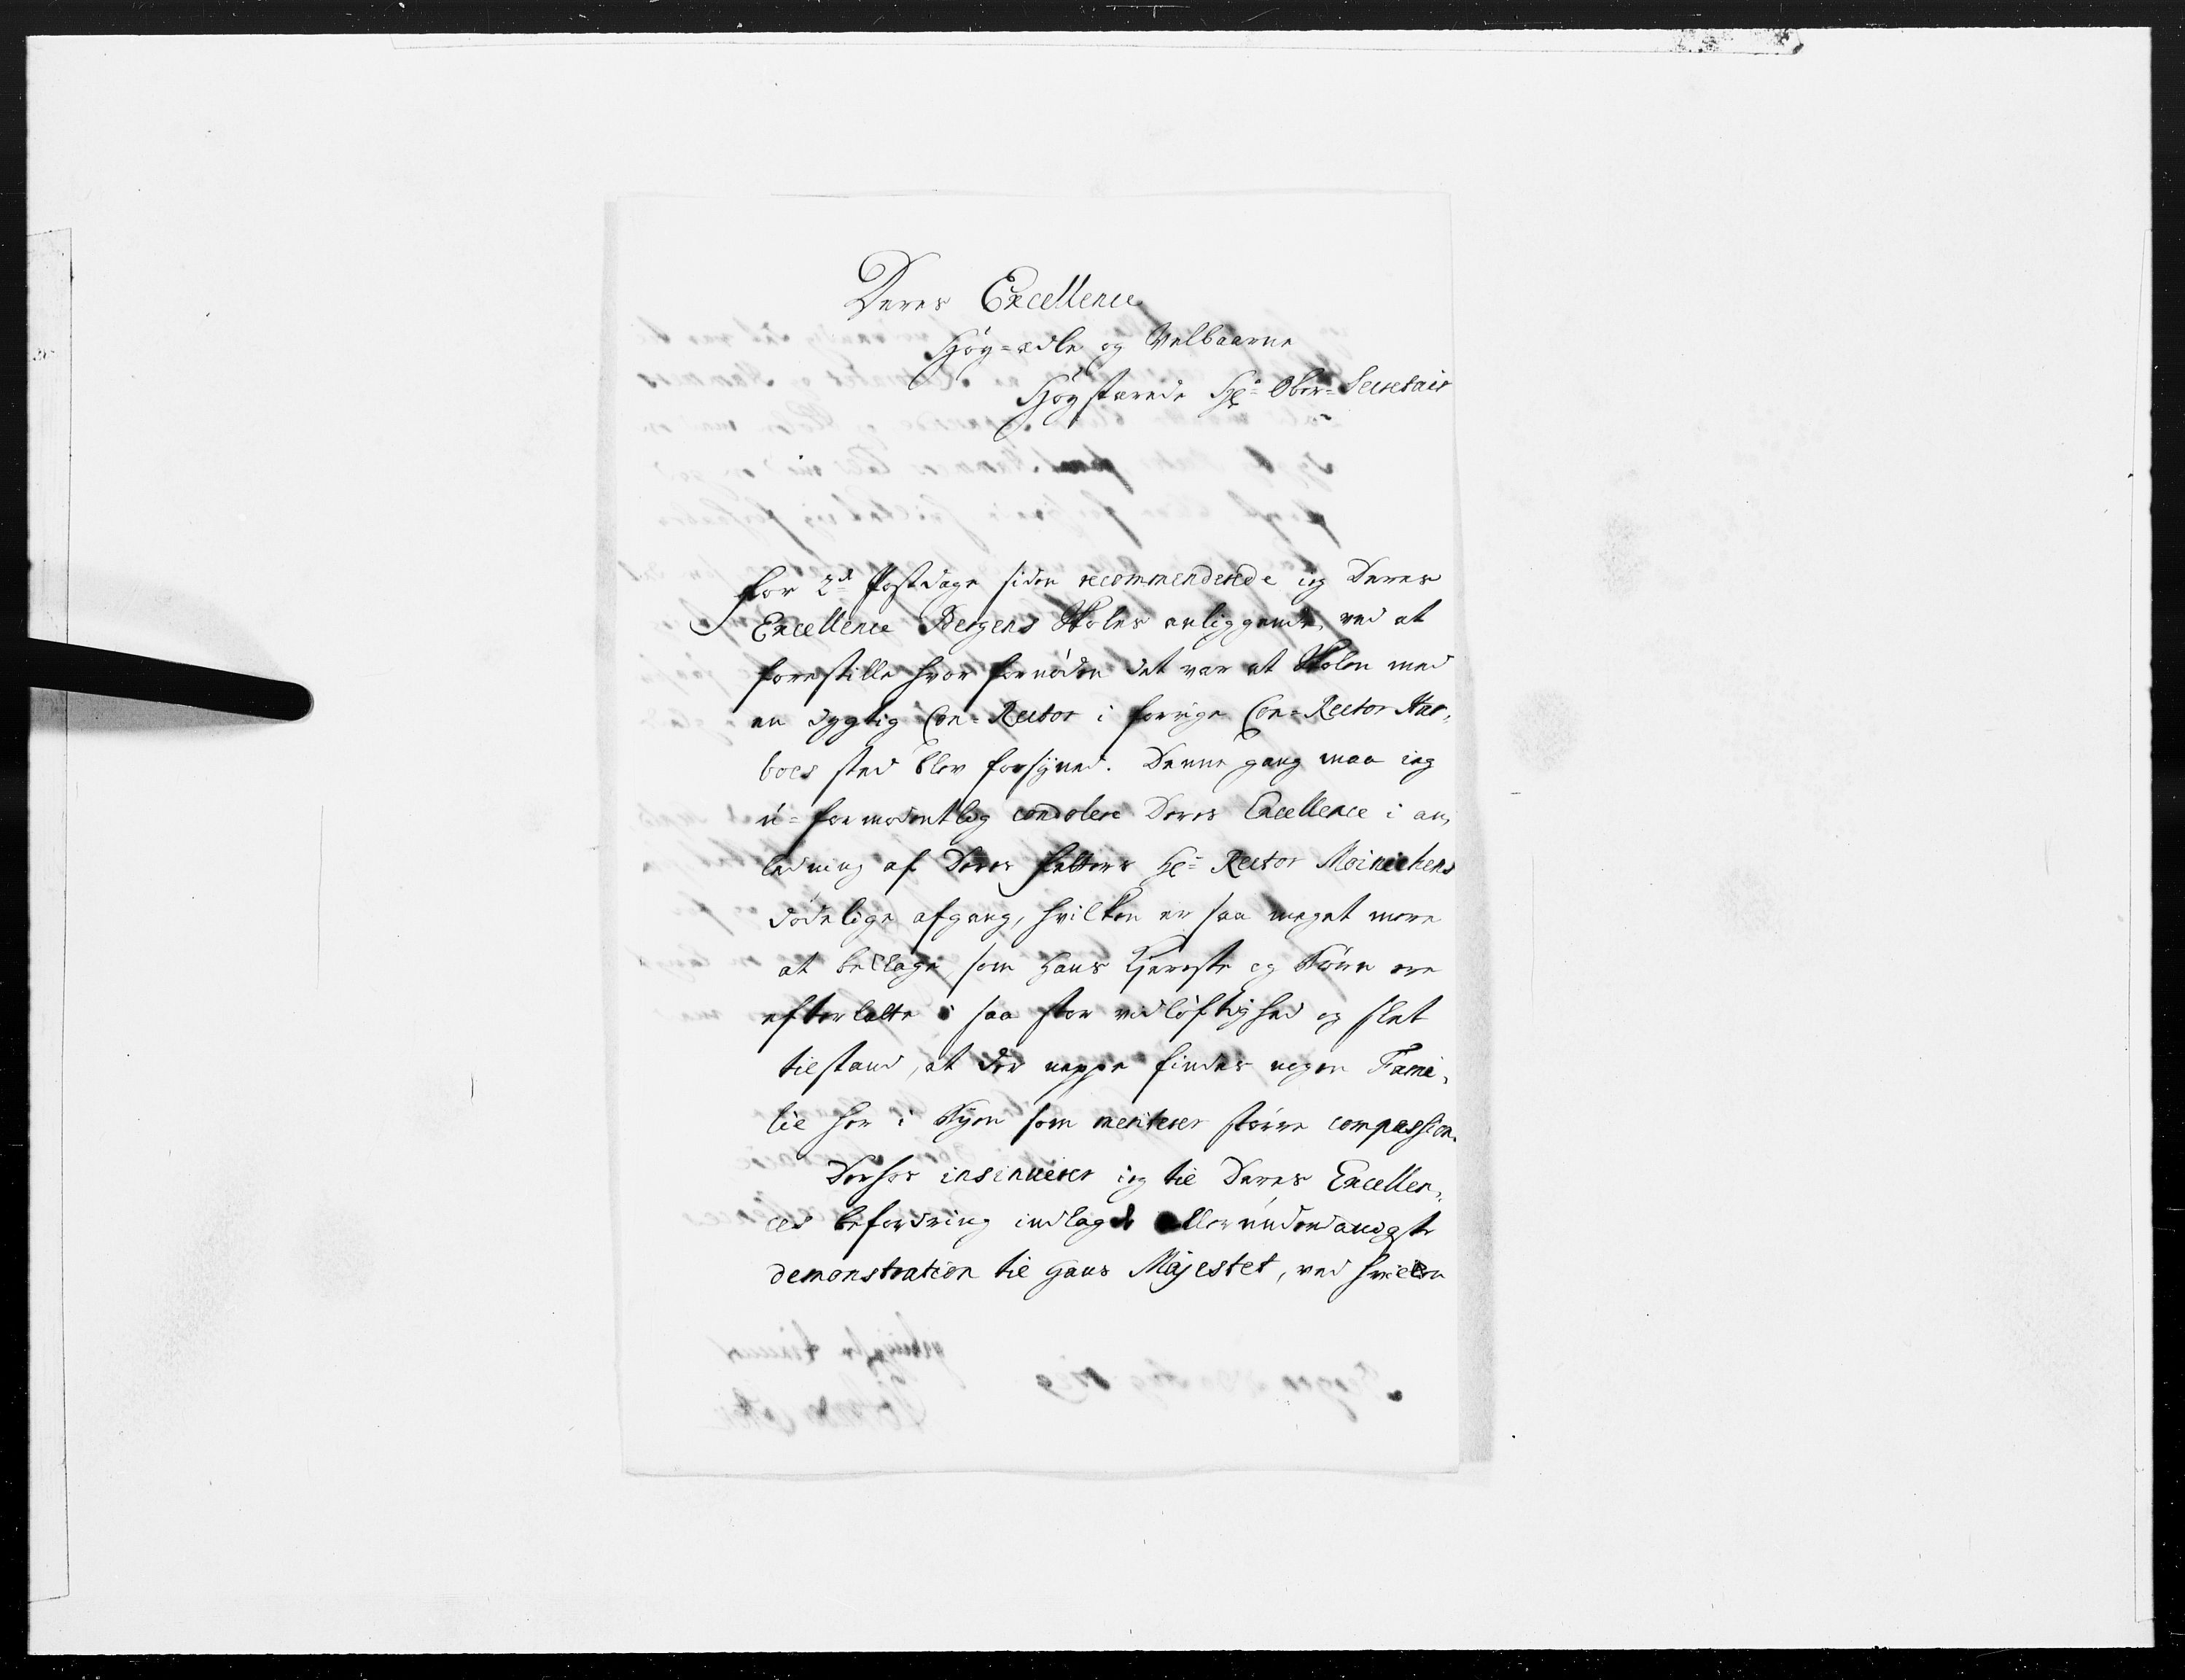 Deres Excellence
Høy-ædle og Velbaarne
Høystærede Hr. Ober-Secretair
For 2de Postdage siden recommenderede ieg Deres
Excellence Bergens Skoles anliggende, ved at
forestille hvor fornøden det var at Skolen med
en dygtig Con-Rector i forrige Con-Rector Har,
boes sted blev forsÿned. Denne gang maa ieg
u-formodentlig condolere Deres Excellence i an,
ledning af Deres Fetters Hr. Rector Moinichens
dødelige afgang, hvilken er saa meget mere
at beklage som hans Kiereste og Børn ere
efterladte i saa stor vidløftighed og slet
tilstand, at der neppe findes nogen Fami,
lie her i Bÿen som meriterer større compassion.
Derhos insinuerer ieg til Deres Excellen,
ces befordring indlagde allerunderdanigste
demonstration til Hans Majestet, ved hvilken